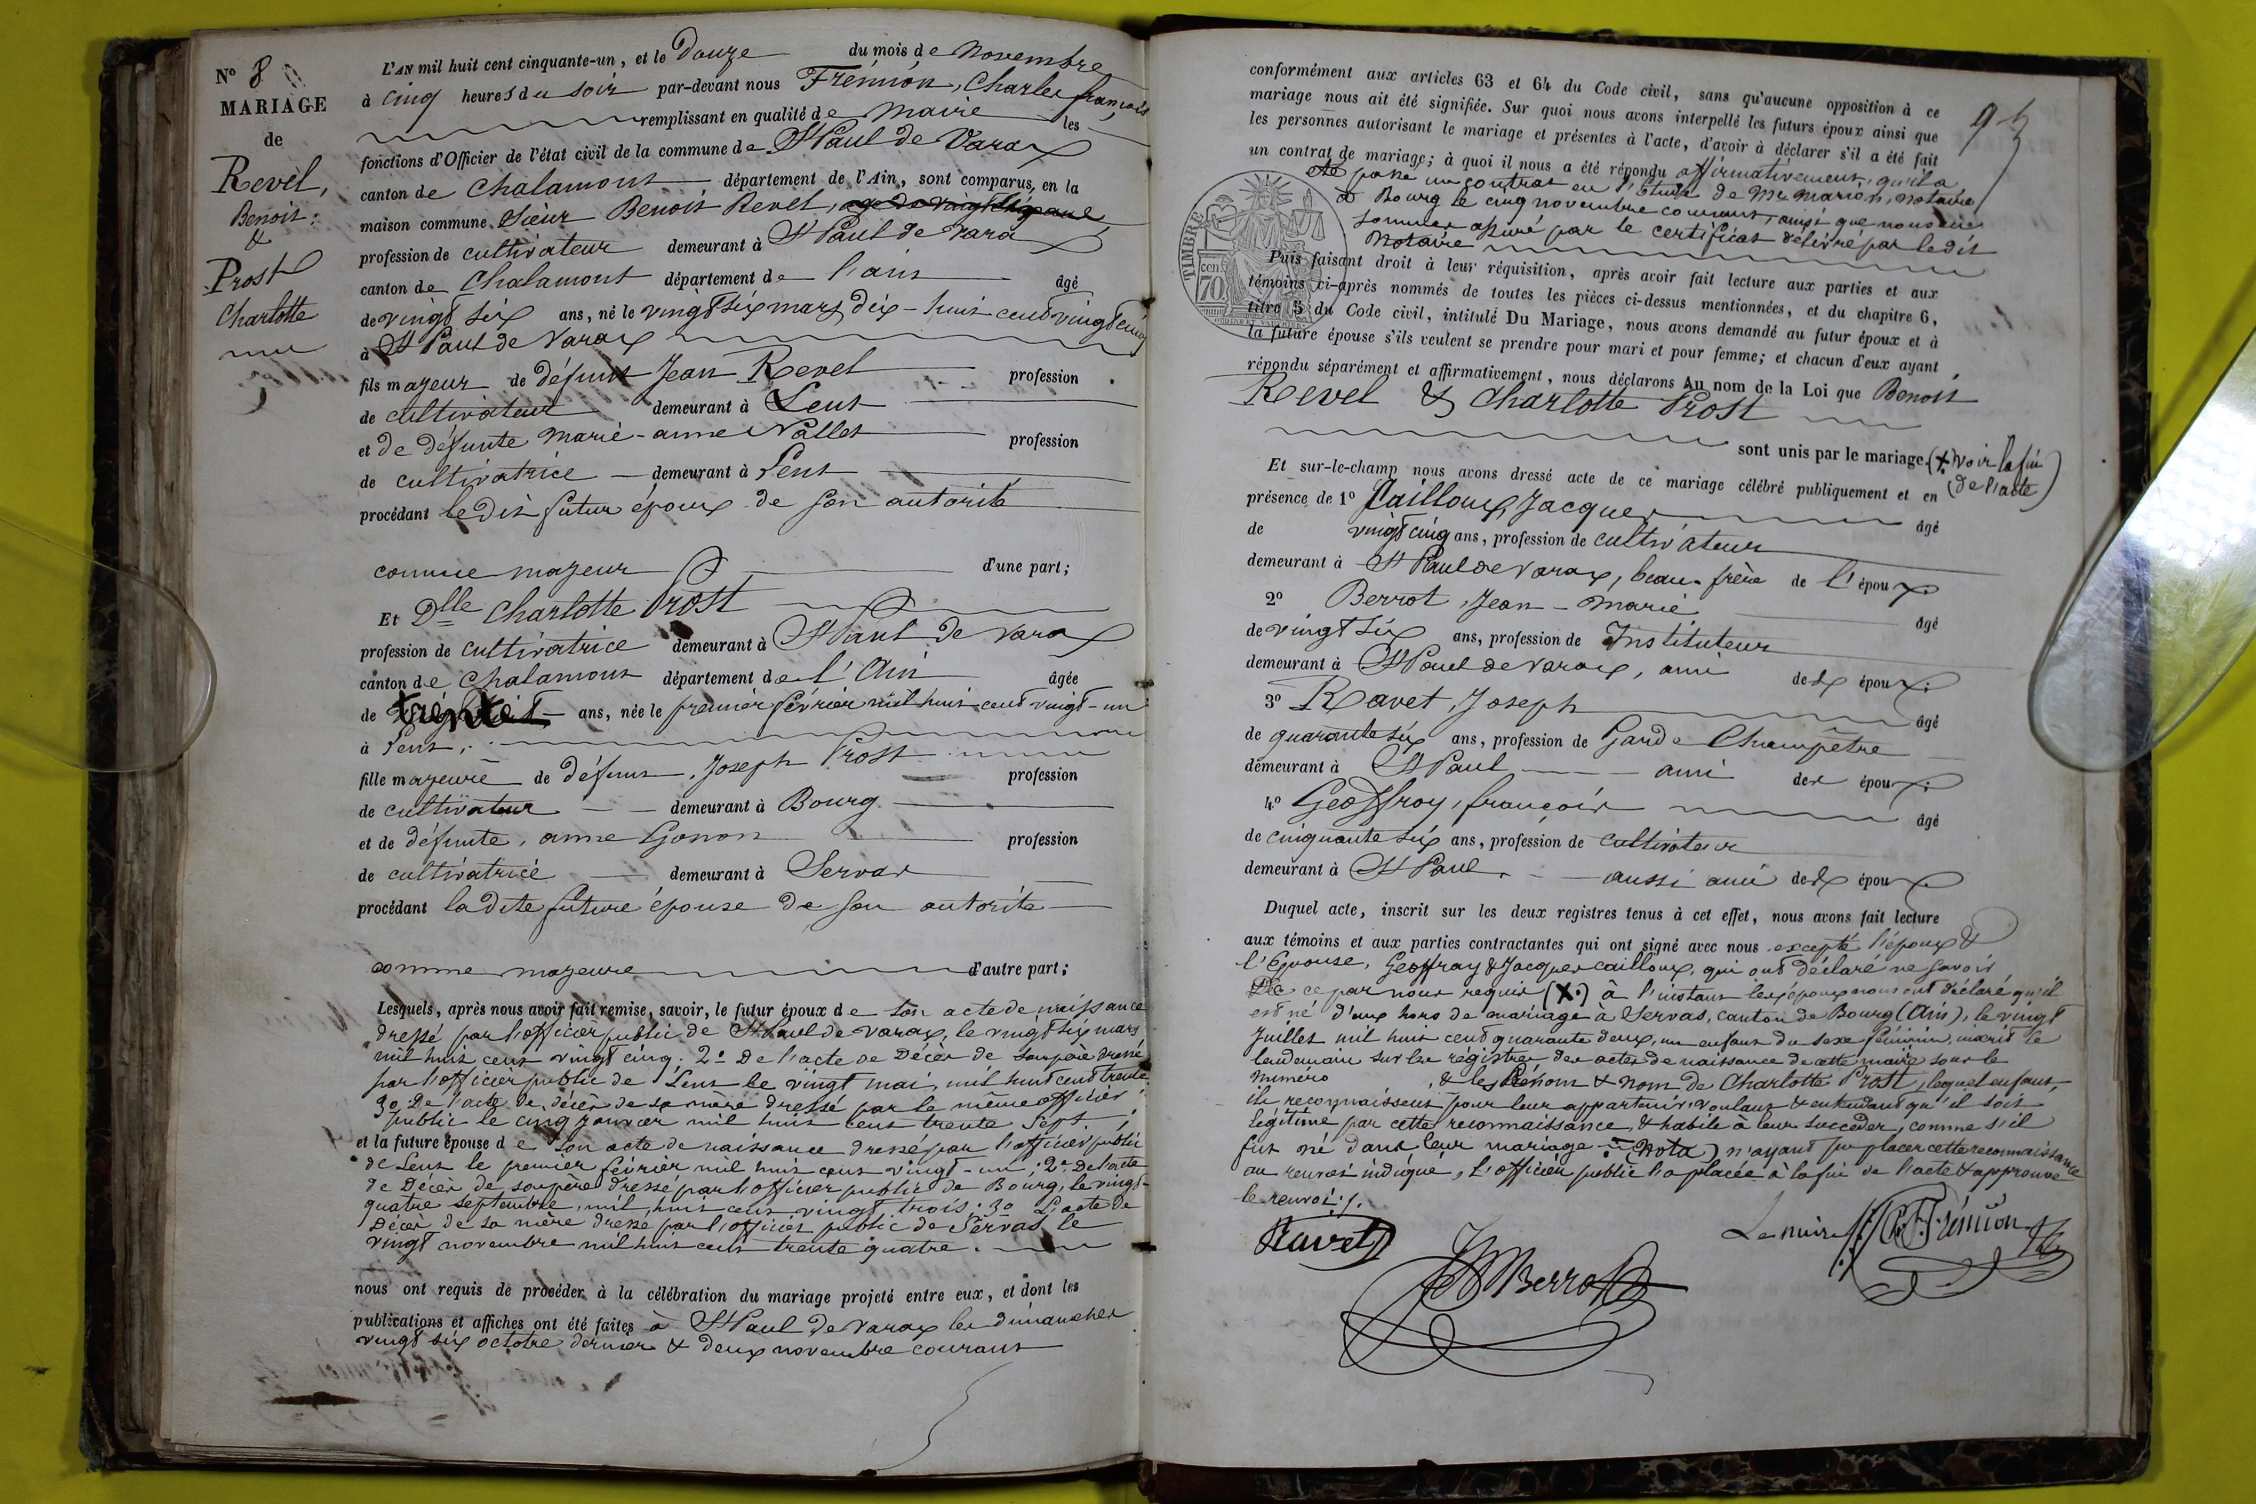 N° 8
MARIAGE
de
Revel,
Benoit;
&
Prost
Charlotte
L'AN mil huit cent cinquante-un, et le Douze du mois de Novembre
à cinq heures du soir par-devant nous Frémion, Charles françois
remplissant en qualité de Maire les
fonctions d'Officier de l'état civil de la commune de St Paul de Varax
canton de Chalamont département de l'Ain, sont comparus, en la
maison commune, Sieur Benoit Revel,
profession de cultivateur demeurant à St Paul de Varax
canton de Chalamont département de l'ain âgé
de vingt six ans, né le vingt six mars dix-huit cent vingt cinq
à St Paul de Varax
fils majeur de défunt Jean Revel profession
de cultivateur demeurant à Lent
et de défunte Marie-anne Nallet profession
de cultivatrice demeurant à Lent
procédant le dit futur époux de son autorité
comme majeur d'une part;
Et Dlle Charlotte Prost
profession de cultivatrice demeurant à St Paul de Varax
canton de Chalamont département de l'Ain âgée
de trente ans, née le premier février mil huit cent vingt-un
à Lent,
fille majeure de défunt Joseph Prost profession
de cultivateur demeurant à Bourg
et de défunte, anne Gonon profession
de cultivatrice demeurant à Servas
procédant la dite future épouse de son autorité
comme majeure d'autre part;
Lesquels, après nous avoir fait remise, savoir, le futur époux de son acte de naissance
dressé par l'officier public de St Paul de Varax, le vingt six mars
mil huit cent vingt cinq. 2° De l'acte de Décès de son père dressé
par l'officier public de Lent le vingt mai, mil huit cent trente.
3° De l'acte de décès de sa mère dressé par le même officier
public le cinq janvier mil huit cent trente sept.
et la future épouse de son acte de naissance dressé par l'officier public
de Lent le premier février mil huit cent vingt-un; 2° De l'acte
de Décès de son père dressé par l'officier public de Bourg, le vingt-
quatre septembre, mil huit cent vingt trois; 3° L'acte de
Décès de sa mère dressé par l'officier public de Servas, le
vingt novembre mil huit cent trente quatre.
nous ont requis de procéder à la célébration du mariage projeté entre eux, et dont les
publications et affiches ont été faites à St Paul de Varax les dimanches
vingt six octobre dernier & deux novembre courant
conformément aux articles 63 et 64 du Code civil, sans qu'aucune opposition à ce
mariage nous ait été signifiée. Sur quoi nous avons interpellé les futurs époux ainsi que
les personnes autorisant le mariage et présentes à l'acte, d'avoir à déclarer s'il a été fait
un contrat de mariage; à quoi il nous a été répondu affirmativement, qu'il a
été passé un contrat en l'étude de Me Marion, Notaire
à Bourg le cinq novembre courant, ainsi que nous nous
sommes assuré par le certificat délivré par le dit
Notaire
TIMBRE
70 cen.
Puis faisant droit à leur réquisition, après avoir fait lecture aux parties et aux
témoins ci-après nommés de toutes les pièces ci-dessus mentionnées, et du chapitre 6,
titre 5 du Code civil, intitulé Du Mariage, nous avons demandé au futur époux et à
la future épouse s'ils veulent se prendre pour mari et pour femme; et chacun d'eux ayant
répondu séparément et affirmativement, nous déclarons Au nom de la Loi que Benoit
Revel & Charlotte Prost
sont unis par le mariage. (X. Voir la fin
de l'acte)
Et sur-le-champ nous avons dressé acte de ce mariage célébré publiquement et en
présence de 1° Cailloux, Jacques âgé
de vingt cinq ans, profession de cultivateur
demeurant à St Paul de Varax, beau-frère de l'époux.
2° Berrot, Jean-Marie âgé
de vingt six ans, profession de Instituteur
demeurant à St Paul de Varax, ami des époux;
3° Ravet, Joseph âgé
de quarante six ans, profession de Garde Champêtre
demeurant à St Paul ami des époux;
4° Geoffroy, françois âgé
de cinquante six ans, profession de cultivateur
demeurant à St Paul, aussi ami des époux
Duquel acte, inscrit sur les deux registres tenus à cet effet, nous avons fait lecture
aux témoins et aux parties contractantes qui ont signé avec nous excepté l'époux &
l'Epouse, Geoffray & Jacques Cailloux, qui ont déclaré ne savoir
De ce par nous requis (X.) à l'instant les époux nous ont déclaré qu'il
est né d'eux hors de mariage à Servas, canton de Bourg (Ain), le vingt
Juillet mil huit cent quarante deux, un enfant du sexe féminin, inscrit le
lendemain sur les régistres des actes de naissance de cette mairie sous le
Numéro , & les Prénom & nom de Charlotte Prost, lequel enfant,
ils reconnaissent pour leur appartenir, voulant & entendant qu'il soit
légitimé par cette reconnaissance, & habile à leur succéder, comme s'il
fut né dans leur mariage. (Nota) n'ayant pu placer cette reconnaissance
au renvoi indiqué, l'officier public l'a placée à la fin de l'acte & approuve
le renvoi.
Ravet
JM Berrot
Le maire Ch. F. Frémion